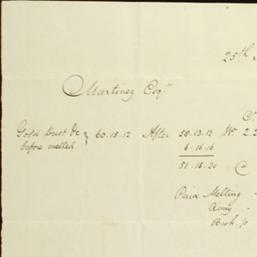 25th
Martinez Esqr
Gold Dust &c } 60.15.12 After 50.13.12 Wt 2.2
before melted 6.16.16
51.16.20
Paid Melting
Assay